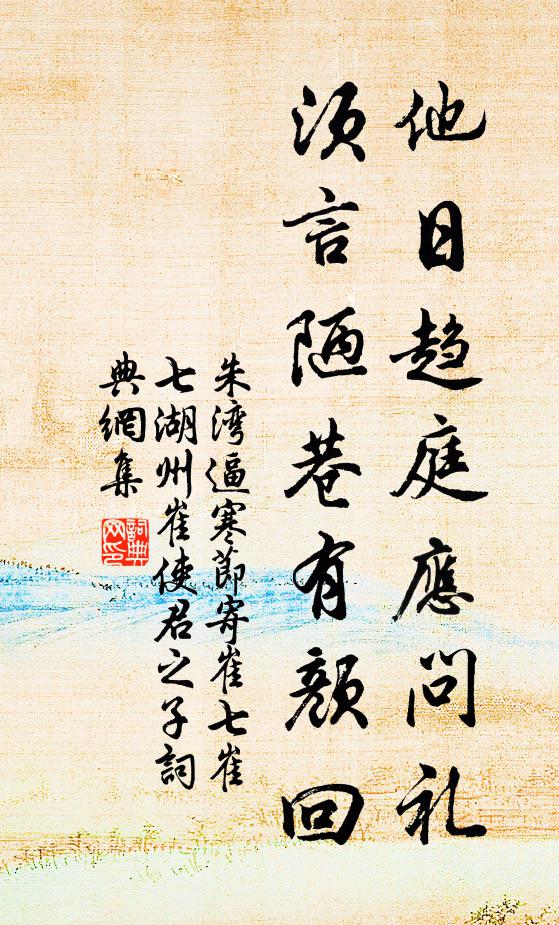 他日趋庭應问礼
须言陋巷有颜回
朱湾逼寒節寄崔七崔
七湖州崔使君之子詞
典網集
詞典网印